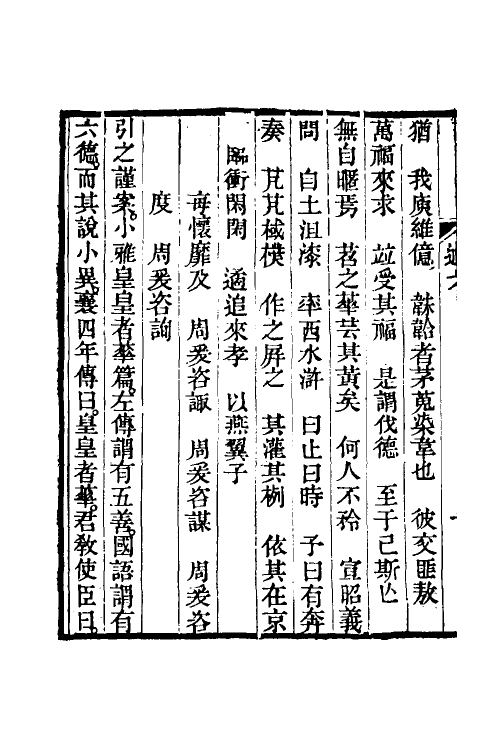 猶　我庾維億　韎韐者茅蒐染韋也　彼交匪敖
萬福來求　竝受其福　是謂伐德　至于己斯亾
無自暱焉　苕之華芸其黃矣　何人不矜　宣昭義
問　自土沮漆　率西水滸　曰止曰時　予曰有奔
奏　芃芃棫樸　作之屏之　其灌其栵　依其在京
臨衝閑閑　遹追來孝　以燕翼子
每懷靡及　周爰咨諏　周爰咨謀　周爰咨
度　周爰咨詢
引之謹案。小雅皇皇者華篇。左傳謂有五善。國語謂有
六德。而其說小異。襄四年傳曰。皇皇者華。君敎使臣曰。